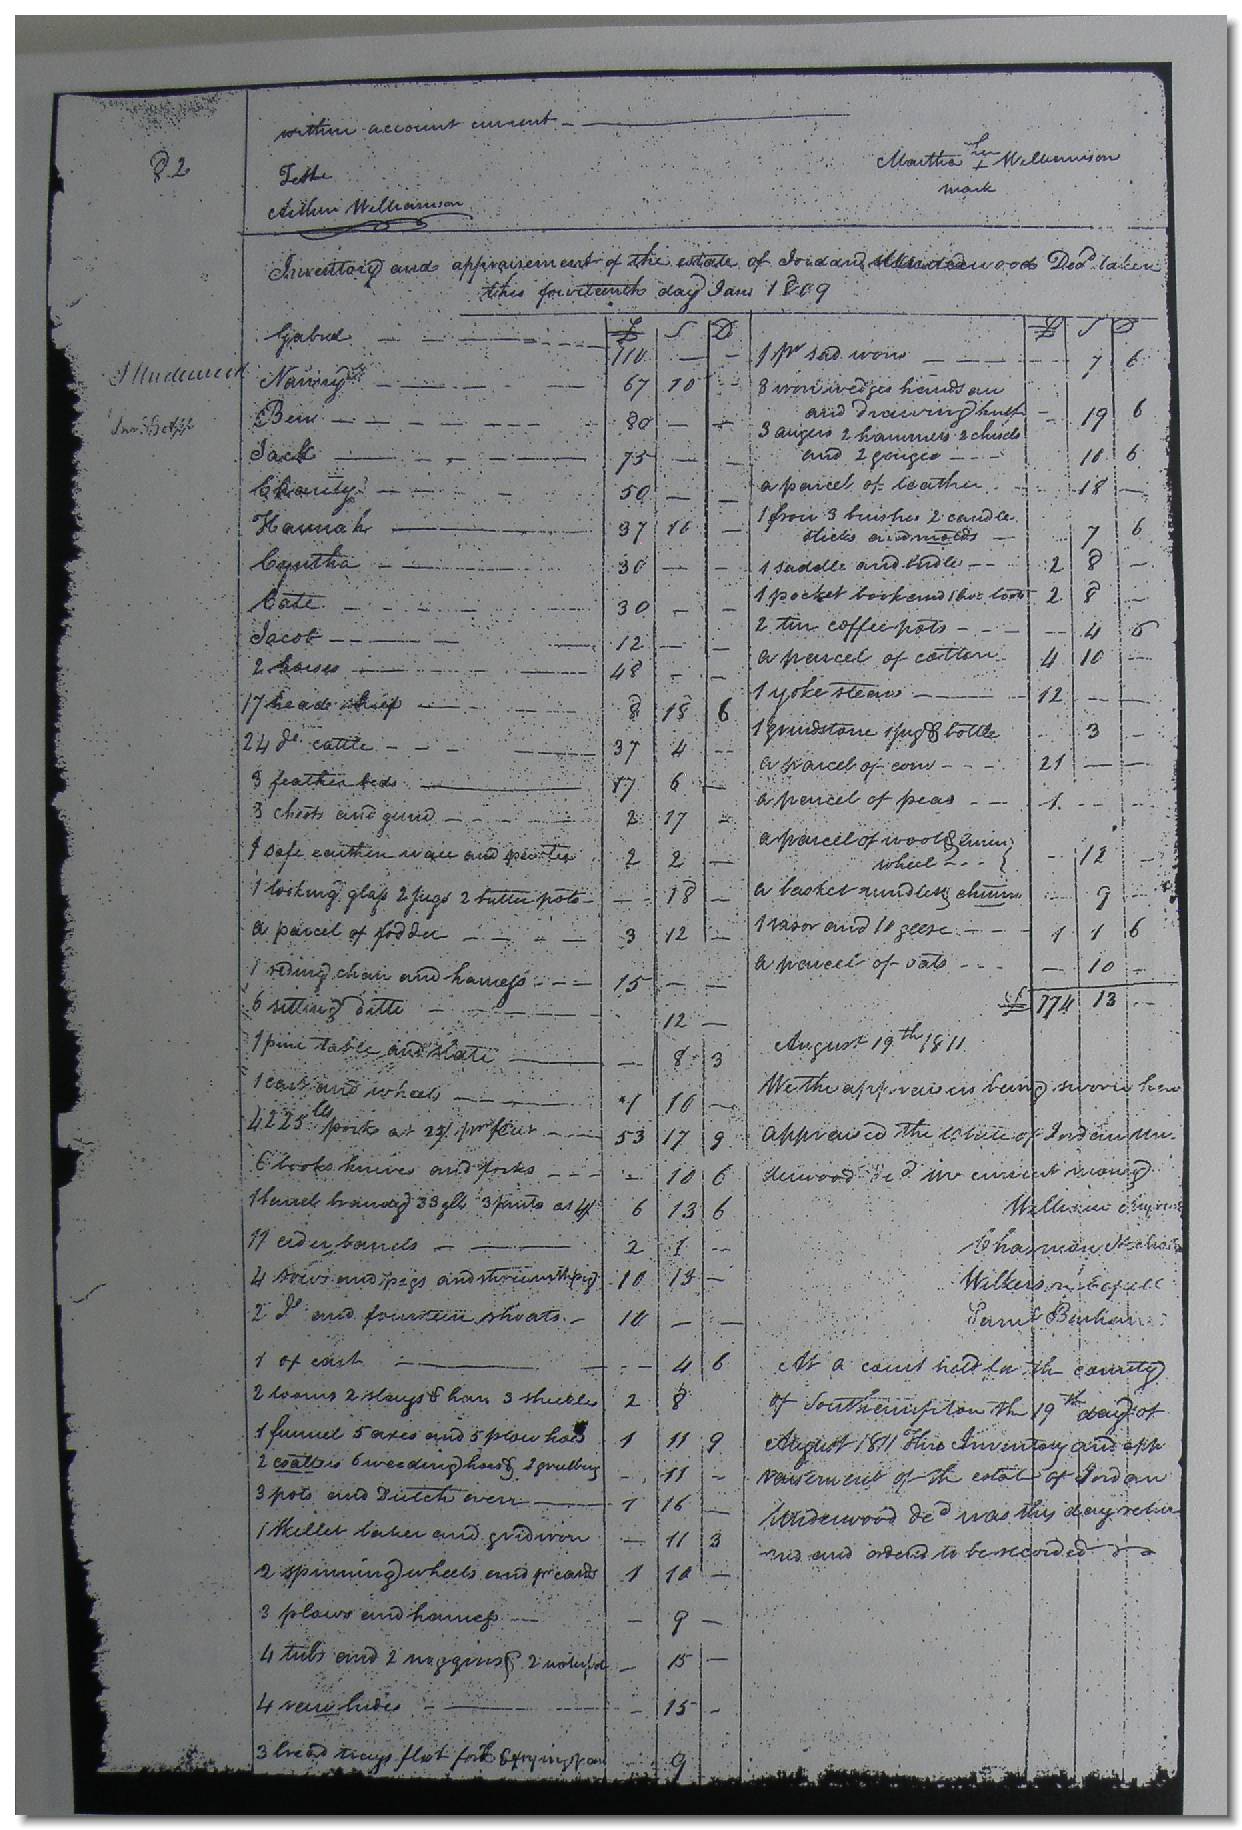 within account current
82
Teste
Arthur Williamson
Martha her Williamson
mark
Inventory and appraisement of the estate of Jordan Underwood Decd taken
this fourteenth day Jan 1809
J Underwood
£ S D
Gabriel 110 — —
Nancy 67 10
Ben 80 — —
Jack 75 — —
Charity 50 — —
Hannah 37 10 —
Cyntha 30 — —
Cate 30 — —
Jacob 12 — —
2 horses 48 — —
17 head sheep 8 18 6
24 do cattle 37 4 —
3 feather beds 17 6 —
3 chests and 2 17 —
1 safe earthen ware and pewter 2 2 —
1 looking glass 2 jugs 2 butter pots — 18 —
a parcel of fodder 3 12 —
1 riding chair and harness 15 — —
6 sitting ditto 12 —
1 pine table and slate — 8 3
1 cart and wheels 1 10 —
4225 lbs pork at 25/ pr 53 17 9
6 books knives and forks — 10 6
1 barrel brandy 33 glls 3 pints at 4/ 6 13 6
11 cider barrels 2 1 —
4 sows and pigs and 10 13 —
2 do and fourteen shoats 10 — —
1 ox cart — 4 6
2 looms 2 slays & 3 shuttles 2 8
1 funnel 5 axes and 5 plow hoes 1 11 9
2 6 weeding hoes & 2 grubbing — 11 —
3 pots and Dutch oven 1 16 —
1 skillet and gridiron — 11 3
2 spinning wheels and pr cards 1 10 —
3 plows and harness — 9 —
4 tubs and 2 noggins & 2 — 15 —
4 raw hides — 15 —
3 bread trays flat fork & frying pan 9
£ S D
1 pr sad irons 7 6
3 iron wedges hand saw
and drawing knife — 19 6
3 augers 2 hammers 2 chisels
and 2 gouges 10 6
a parcel of leather 18 —
1 frow 3 brushes 2 candle
sticks and molds 7 6
1 saddle and bridle 2 8 —
1 pocket book and 2 8 —
2 tin coffee pots — 4 6
a parcel of cotton 4 10 —
1 yoke steers 12 — —
1 grindstone 1 jug & bottle — 3 —
a parcel of corn 21 — —
a parcel of peas 1 — —
a parcel of wool & linen
wheel — 12 —
a basket rundlet & churn — 9 —
1 razor and 10 geese 1 1 6
a parcel of oats — 10 —
£ 774 13 —
August 19th 1811
We the appraisers being sworn have
appraised the estate of Jordan Un
derwood decd in current money
William
Wilkerson
Saml
At a court held for the county
of Southampton the 19th day of
August 1811 This Inventory and app
raisement of the estate of Jordan
Underwood decd was this day retur
ned and ordered to be recorded